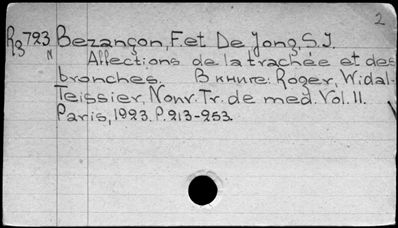 2
Rg 723 Bezançon, F. et De Jong, S. J.
N Affections de la trachée et des
bronches. В книге: Roger, Widal-
Teissier, Nonv. Tr. de med. Vol. 11.
Paris, 1923. P. 213-253.